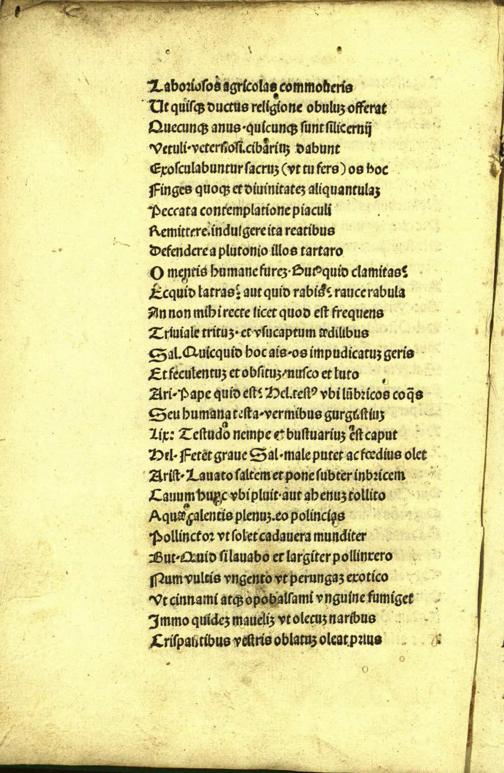 Laboriosos agricolas commoueris
Ut quisqꝫ ductus religione obuluꝫ offerat
Quecunqꝫ anus·quicunqꝫ sunt silicernij
Vetuli·vetersiosi.cibariuꝫ dabunt
Exosculabuntur sacruꝫ (vt tu fers) os hoc
Finges quoqꝫ et diuinitateꝫ aliquantulaꝫ
Peccata contemplatione piaculi
Remittere.indulgere ita reatibus
Defendere a plutonio illos tartaro
O mentis humane fureꝫ· quid clamitas?
Ecquid latras? aut quid rabis? rauce rabula
An non mihi recte licet quod est frequens
Triuiale trituꝫ·et vsucaptum edilibus
Sal. Quicquid hoc ais·os impudicatuꝫ geris
Et feculentuꝫ et obsituꝫ musco et luto
Ari·Pape quid est? Hel.test⁹ vbi lūbricos coq̄s
Seu humana testa·vermibus gurgustiuꝫ
Lix: Testudo nempe bustuarius est caput
Hel·Fetēt graue Sal·male putet ac fedius olet
Arist·Lauato saltem et pone subter inbricem
Cauum hunc vbi pluit·aut ahenuꝫ tollito
Aque calentis plenuꝫ.eo polincias
Pollinctor vt solet cadauera munditer
But·Quid si lauabo et largiter pollinxero
Num vultis vngento vt perungaꝫ exotico
Vt cinnami atqꝫ opobalsami vnguine fumiget
Immo quideꝫ maueliꝫ vt oletuꝫ naribus
Crispantibus vestris oblatuꝫ oleat prius